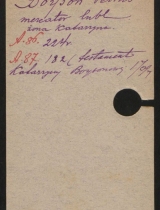 mercator lubl.
żona Katarzyna
A. 86. 224v.
A. 87. 182 (testament
Katarzyny Boysonowej